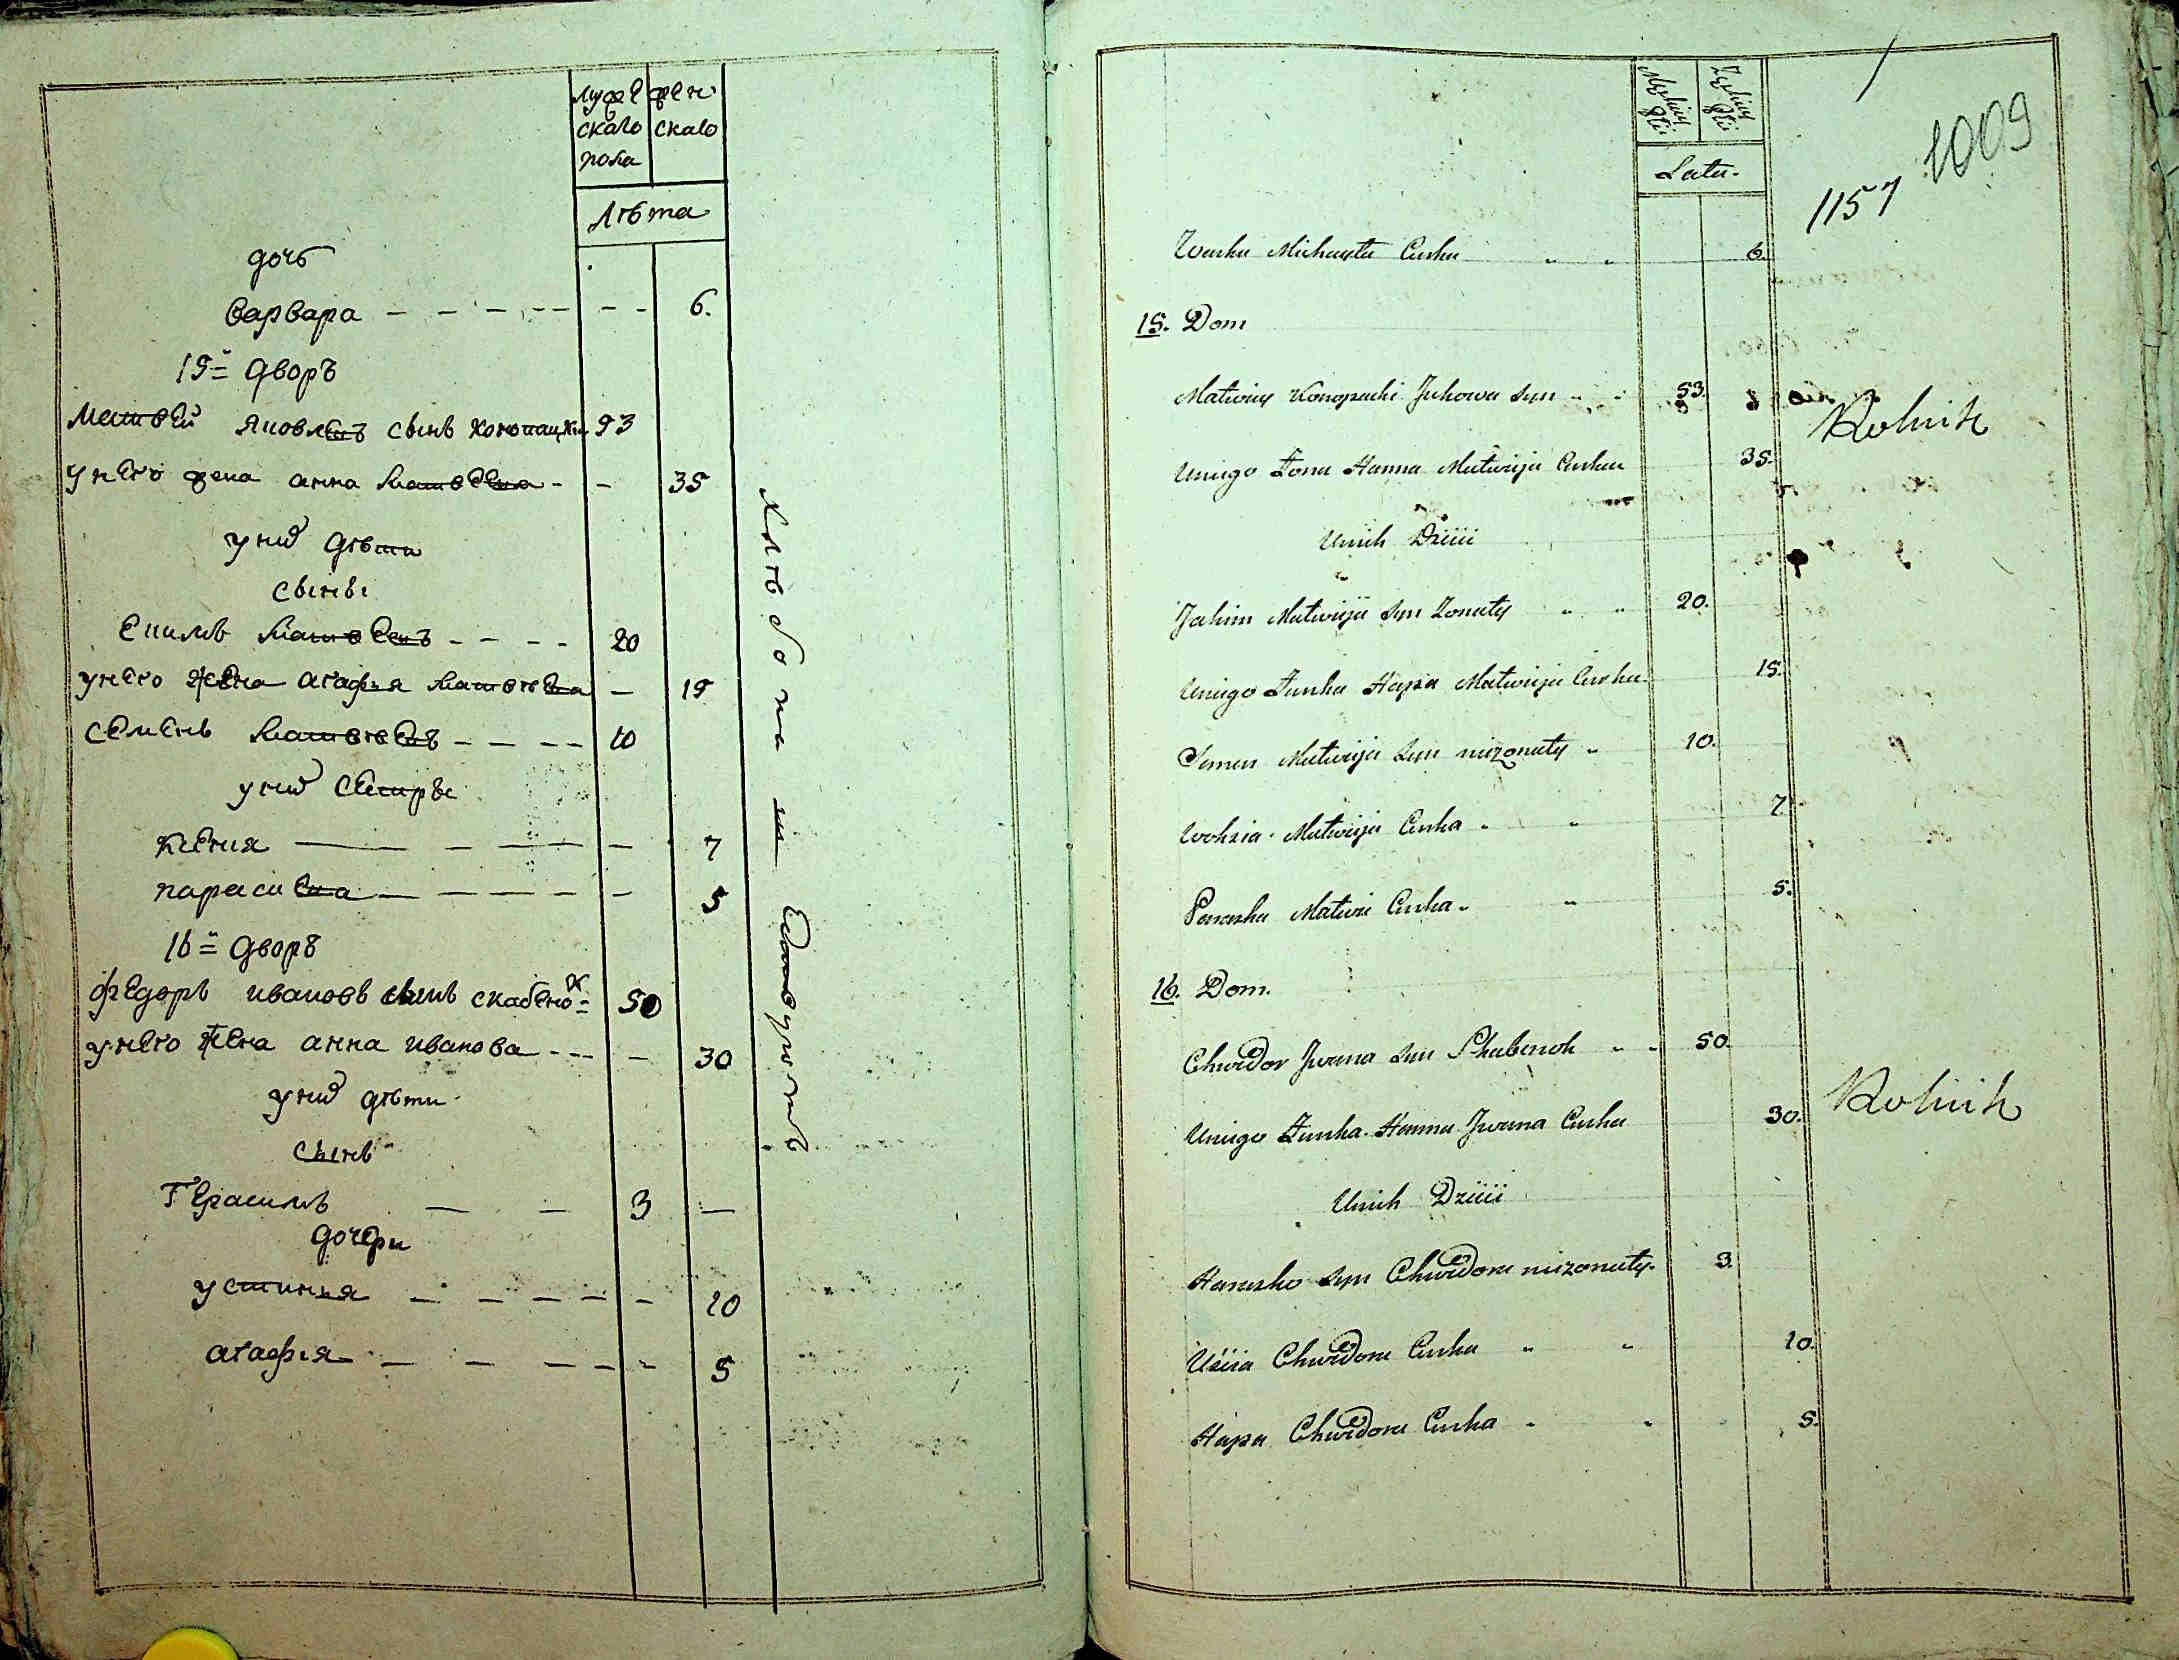 муже
скаго
пола
жен
скаго
Лѣта
дочь
Варвара 6.
15й дворъ
Матвей Яковлевъ сынъ Конопацки 53
у него жена Анна Матвеева 35
у них дѣти
сынъ
Екимъ Матвеевъ 20
у него жена Агафья Матвеева 15
Семенъ Матвеевъ 10
у них сестры
Ксения 7
Парасковя 5
16й дворъ
Федоръ Ивановъ сынъ Скабенох 50
у него жена Анна Иванова 30
у них дѣти
сынъ
Герасимъ 3
дочери
Устинья 10
Агафья 5
хлѣбопашествуютъ
1009
1157
Męskiey Płci
Żeńskiey Płci
Lata.
Warka Michayła Curka 6.
15. Dom
Matwiey Konopacki Jakowa syn 53.
Rolnik
Uniego Żona Hanna Matwija Curka 35.
Unich Dzieci
Jakim Matwija syn Żonaty 20.
Uniego Żunka Hapa Matwija Curka 15.
Semen Matwija syn nieżonaty 10.
Woksia Matwija Curka 7.
Paraska Matwie Curka 5.
16. Dom.
Chwedor Iwana syn Skabenoh 50.
Uniego Żunka Hanna Iwana Curka 30.
Rolnik
Unich Dzieci
Harasko syn Chwedora nieżonaty. 3.
Uścia Chwedora Curka 10.
Hapa Chwedora Curka 5.